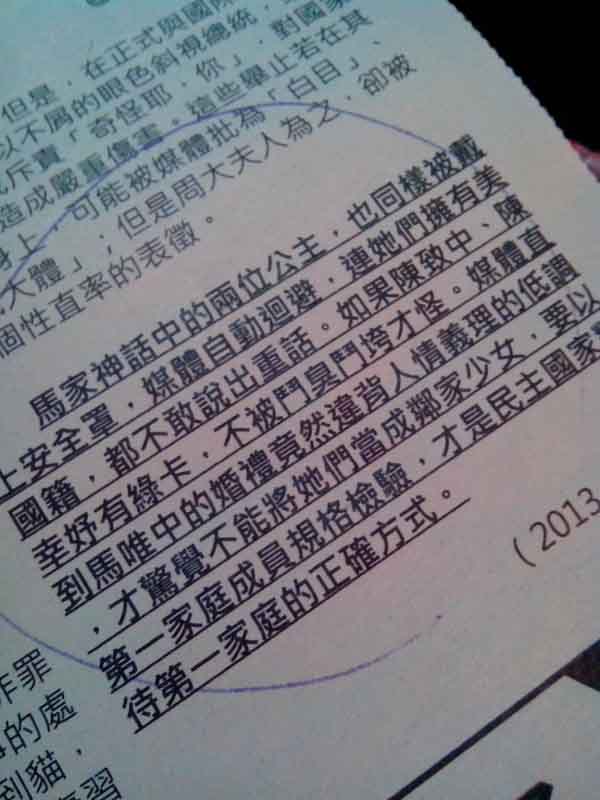 但是，在正式與國際
以不屑的眼色斜視總統，
斥責「奇怪耶，你」，對國家
造成嚴重傷害。這些舉止若在其
身上，可能被媒體批為「白目」、
大體」；但是周大夫人為之，卻被
個性直率的表徵。
馬家神話中的兩位公主，也同樣被戴
上安全罩，媒體自動迴避，連她們擁有美
國籍，都不敢說出重話。如果陳致中、陳
幸妤有綠卡，不被鬥臭鬥垮才怪。媒體直
到馬唯中的婚禮竟然違背人情義理的低調
，才驚覺不能將她們當成鄰家少女，要以
第一家庭成員規格檢驗，才是民主國家
待第一家庭的正確方式。
（2013
詐罪
的處
到貓，
習